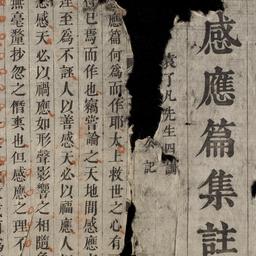 感應篇集註
袁了凡先生四訓
公記
感應篇何為而作耶太上救世之心有
得已焉而作也竊嘗論之天地間感應
淫至為不誣人以善感天必以福應人
惡感天必以禍應如形聲影響之相隨
無毫釐抄忽之僭爽也但感應之理不